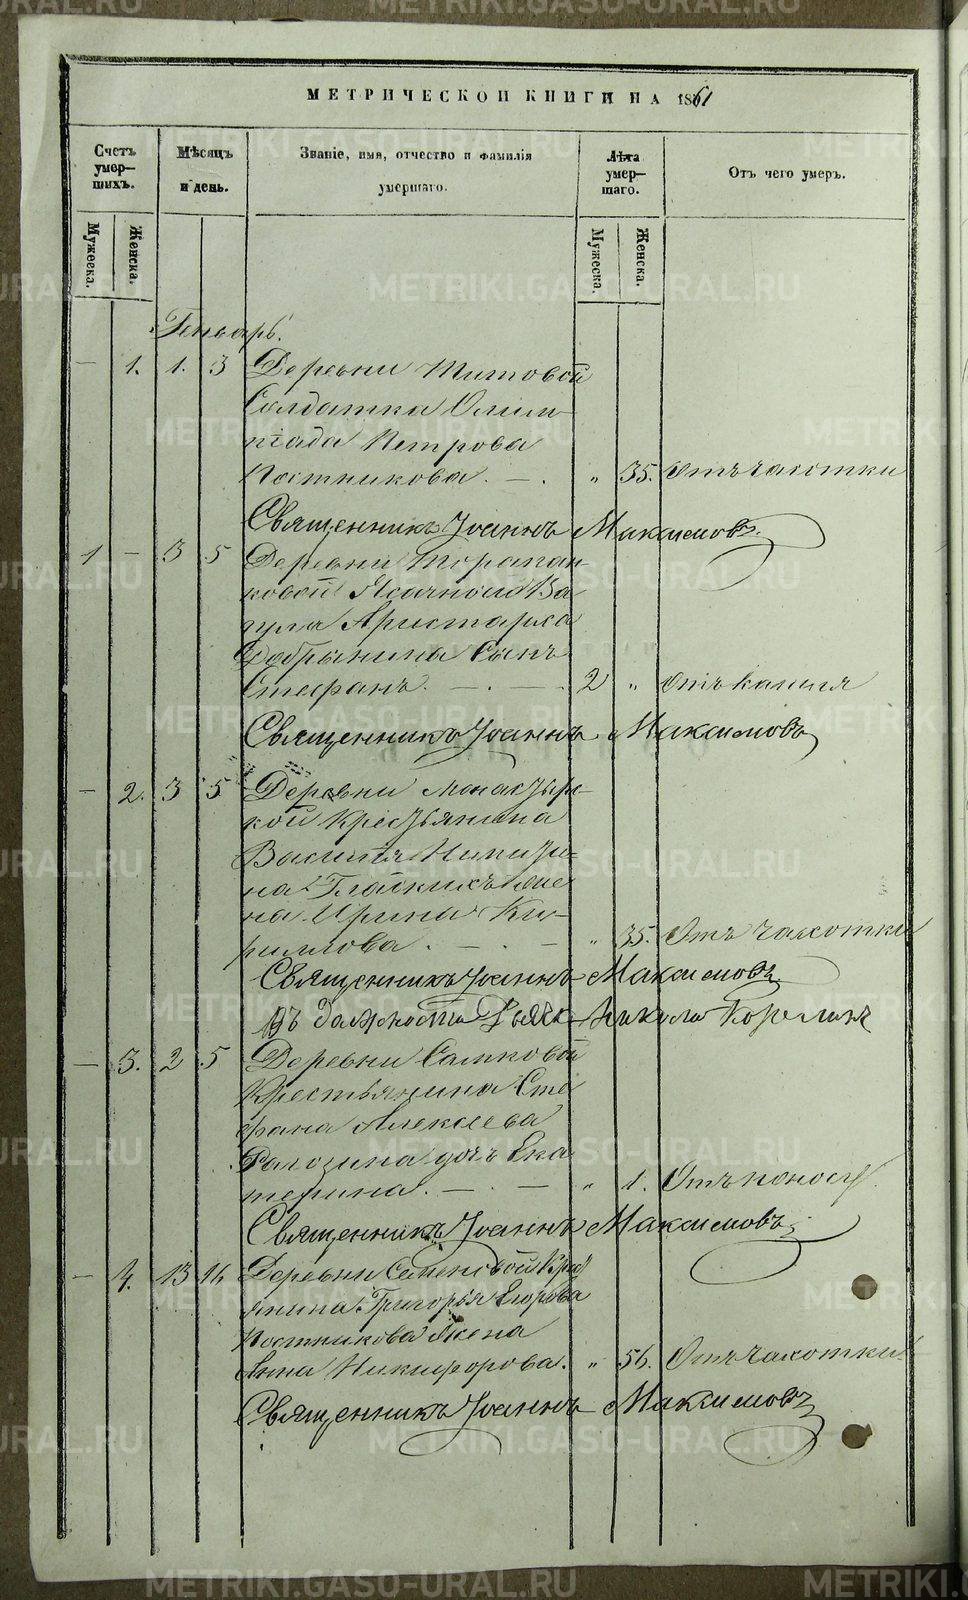 МЕТРИЧЕСКОЙ КНИГИ НА 1861
Счетъ умер-шихъ.
Мѣсяцъ и день.
Званіе, имя, отчество и фамилія умершаго.
Лѣта умер-шаго.
Отъ чего умеръ.
Мужеска.
Женска.
Мужеска.
Женска.
Генварь.
— 1. 1. 3 Деревни Титовой
Солдатка Олим-
піада Петрова
Постникова. — . „ 35. Отъ чахотки
Священникъ Іоаннъ Максимовъ.
1 — 3 5 Деревни
ковой Ясачнаго Ва
кула Аристарха
Добрынина Сынъ
Стефанъ. — . — . 2 „ Отъ кашля
Священникъ Іоаннъ Максимовъ
— 2. 3 5 Деревни Монастыр-
кой Крестьянина
Василія Никити-
на Гладкихъ жена
Ирина Ки-
риллова . — . — „ 35. Отъ чахотки
Священникъ Іоаннъ Максимовъ
Въ должности Дьячка Никола
— 3. 2 5 Деревни
Крестьянина Сте
фана Алексеева
Рагозина дочь Ека
терина. — . — „ 1. Отъ поносу.
Священникъ Іоаннъ Максимовъ
— 4. 13 16 Деревни Семеновой Крест
янина Григорья Егорова
Постникова жена
Анна Никифорова. „ 56. Отъ чахотки.
Священникъ Іоаннъ Максимовъ
METRIKI.GASO-URAL.RU